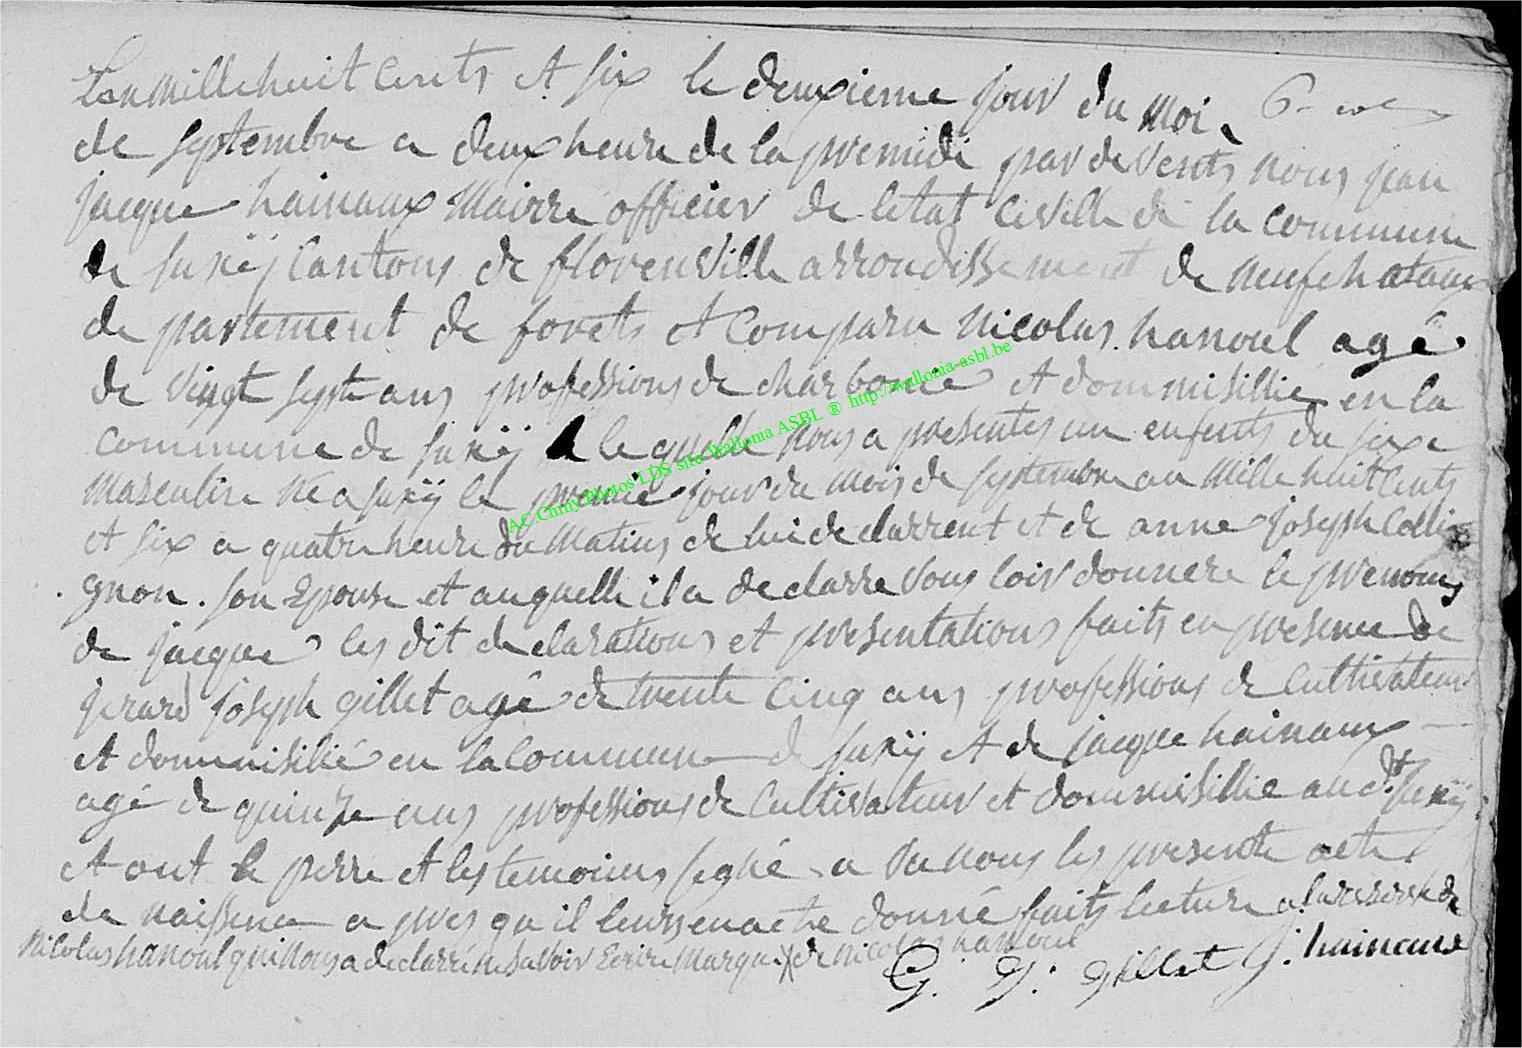 Lan mille huit cents et six le deuxieme jour du moi
de septembre a deux heure de la premidi par devents nous jean
jacque hainaux Mairre officier de letat civelle de la commune
de suxÿ Cantons de florenville arrondissement de neufchataux
de partement de forets et comparu nicolas hanoul agé
de vingt septe ans professions de charbonie et dommisillié en la
commune de suxÿ le quelle nous a presentes un enfents du sexe
masculin ne a suxÿ le premie jour du mois de septembre an mille huit cents
et six a quatre heure du matins de lui declarrent et de anne joseph Colli
gnon son Epouse et auquelle il a declarre vous loir donnere le prenoms
de jacque les dit declarations et presentations faits en presence de
jerard joseph gillet agé de trente cinq ans professions de cultivateur
et dommisilié en la commune d suxÿ et de jacque hainaux
agé de quinze ans professions de cultivateur et dommisillie au dt suxÿ
et ont le perre et les temoins segné a va nous les presente acte
de naissence a pres qu il leurs en a ete donné faits lecture a la reserve de
nicolas hanoul qui nous a declarre ne savoir Ecrire marque X de nicolas hanoul
G. J. gillet J. hainaux
AC Chiny Photos LDS site Wallonia ASBL ® http://wallonia-asbl.be